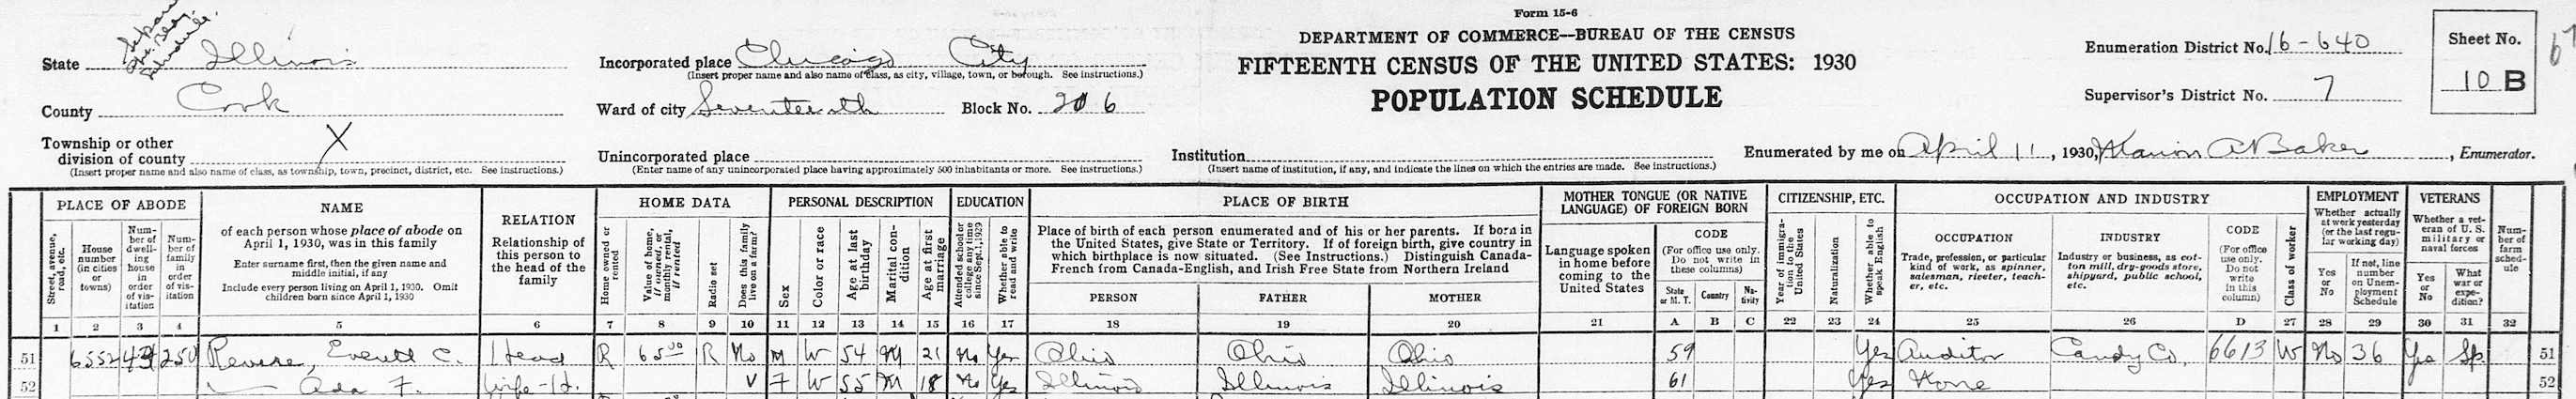 Form 15-6
DEPARTMENT OF COMMERCE—BUREAU OF THE CENSUS
FIFTEENTH CENSUS OF THE UNITED STATES: 1930
POPULATION SCHEDULE
State Illinois
County Cook
Township or other division of county X
(Insert proper name and also name of class, as township, town, precinct, district, etc. See instructions.)
Incorporated place Chicago City
(Insert proper name and also name of class, as city, village, town, or borough. See instructions.)
Ward of city Seventeenth Block No. 206
Unincorporated place
(Enter name of any unincorporated place having approximately 500 inhabitants or more. See instructions.)
Institution
(Insert name of institution, if any, and indicate the lines on which the entries are made. See instructions.)
Enumeration District No. 16-640
Supervisor's District No. 7
Sheet No.
10 B
Enumerated by me on April 11, 1930, Marion A Baker, Enumerator.
PLACE OF ABODE
Street, avenue, road, etc.
House number (in cities or towns)
Num-ber of dwell-ing house in order of vis-itation
Num-ber of family in order of vis-itation
NAME
of each person whose place of abode on April 1, 1930, was in this family
Enter surname first, then the given name and middle initial, if any
Include every person living on April 1, 1930. Omit children born since April 1, 1930
RELATION
Relationship of this person to the head of the family
HOME DATA
Home owned or rented
Value of home, if owned, or monthly rental, if rented
Radio set
Does this family live on a farm?
PERSONAL DESCRIPTION
Sex
Color or race
Age at last birthday
Marital con-dition
Age at first marriage
EDUCATION
Attended school or college any time since Sept. 1, 1929
Whether able to read and write
PLACE OF BIRTH
Place of birth of each person enumerated and of his or her parents. If born in the United States, give State or Territory. If of foreign birth, give country in which birthplace is now situated. (See Instructions.) Distinguish Canada-French from Canada-English, and Irish Free State from Northern Ireland
PERSON FATHER MOTHER
MOTHER TONGUE (OR NATIVE LANGUAGE) OF FOREIGN BORN
Language spoken in home before coming to the United States
CODE
(For office use only. Do not write in these columns)
State or M. T. Country Na-tivity
CITIZENSHIP, ETC.
Year of immigra-tion to the United States
Naturalization
Whether able to speak English
OCCUPATION AND INDUSTRY
OCCUPATION
Trade, profession, or particular kind of work, as spinner, salesman, riveter, teach-er, etc.
INDUSTRY
Industry or business, as cot-ton mill, dry-goods store, shipyard, public school, etc.
CODE
(For office use only. Do not write in this column)
Class of worker
EMPLOYMENT
Whether actually at work yesterday (or the last regu-lar working day)
Yes or No
If not, line number on Unem-ployment Schedule
VETERANS
Whether a vet-eran of U.S. military or naval forces
Yes or No
What war or expe-dition?
Num-ber of farm sched-ule
1 2 3 4 5 6 7 8 9 10 11 12 13 14 15 16 17 18 19 20 21 A B C 22 23 24 25 26 D 27 28 29 30 31 32
51 6552 250 Revere, Everett C. Head R 65.00 R No M W 54 M 21 No Yes Ohio Ohio Ohio 59 Yes Auditor Candy Co. 6613 W No 36 Yes Sp. 51
52 Ada F. Wife-H. V F W 55 M 18 No Yes Illinois Illinois Illinois 61 Yes None 52